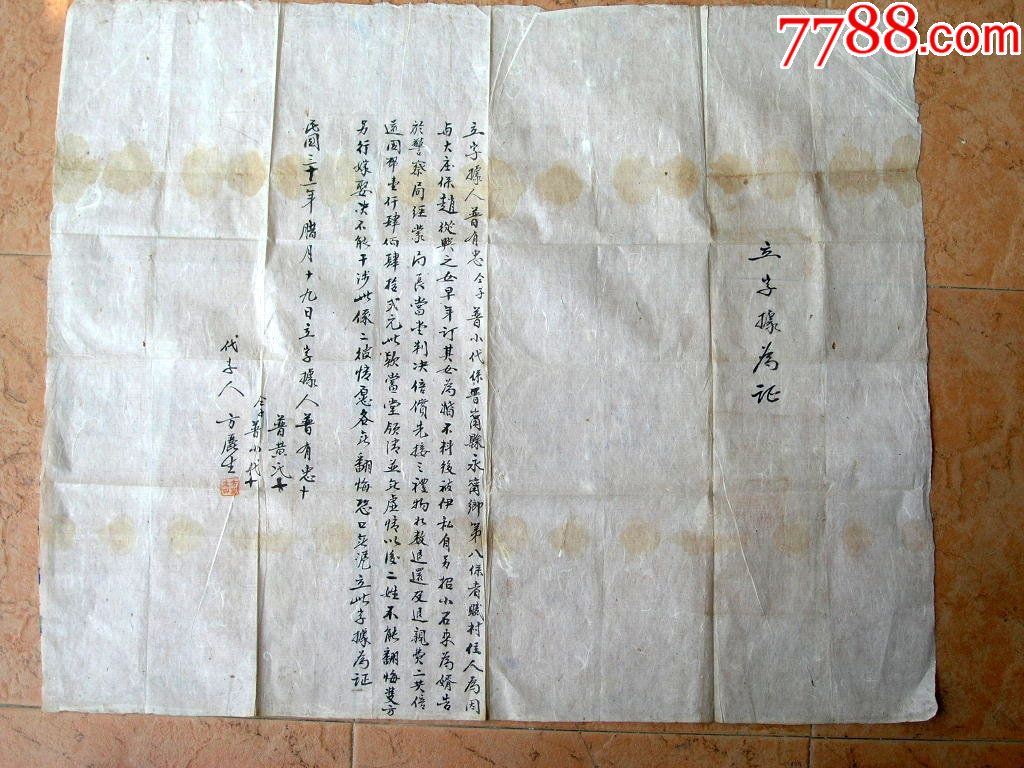 7788.com
立字據為证
立字據人普有忠仝子普小代係晋甯縣永甯鄉第八保者賊村住人為因
与大庄保趙從興之女早年订其女為婚不料後被伊私自另招小石來為婿告
於警察局经蒙局長當堂判决倍償先接之禮物扣数退還及退親費二共倍
還国幣壹仟肆佰肆拾弍元此欵當堂领清並無虚情以後二姓不能翻悔雙方
另行嫁娶决不能干涉此係二彼情愿各無翻悔恐口無凴立此字據為证
民国三十一年腊月十九日立字據人普有忠十
普黄氏十
仝子普小代十
代字人方慶生